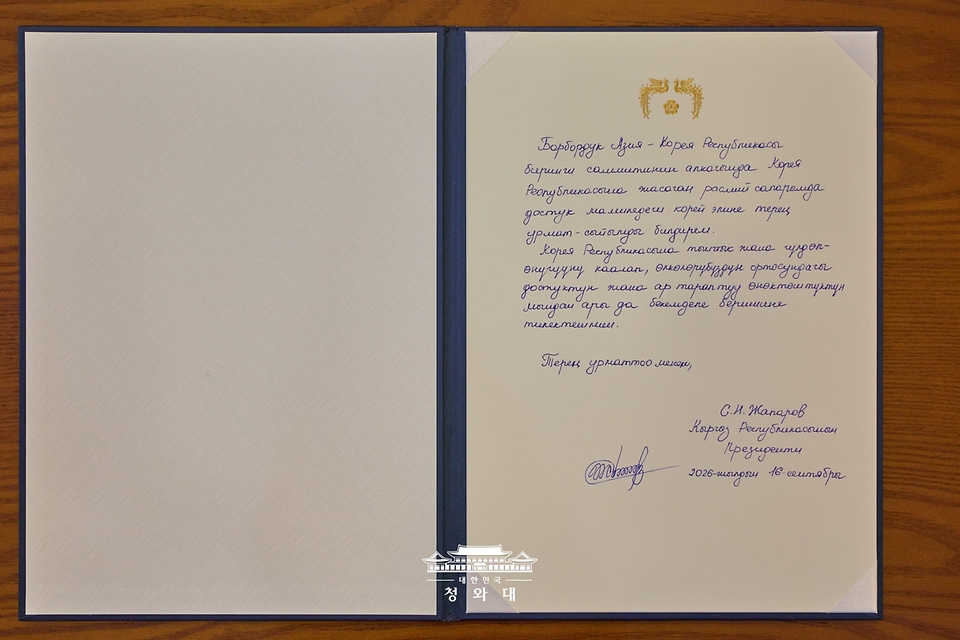 Борбордук Азия - Корея Республикасы
биринчи саммитинин алкагында Корея
Республикасына жасаган расмий сапарымда
достук мамиледеги корей элине терең
урмат-сыйымды билдирем.
Корея Республикасына тынчтык жана гүлдөп-
өнүгүүнү каалап, өлкөлөрүбүздүн ортосундагы
достуктун жана ар тараптуу өнөктөштүктүн
мындан ары да бекемделе беришине
тилектешмин.
Терең урматтоо менен,
С.Н. Жапаров
Кыргыз Республикасынын
Президенти
2026-жылдын 16 сентябры
대한민국
청와대